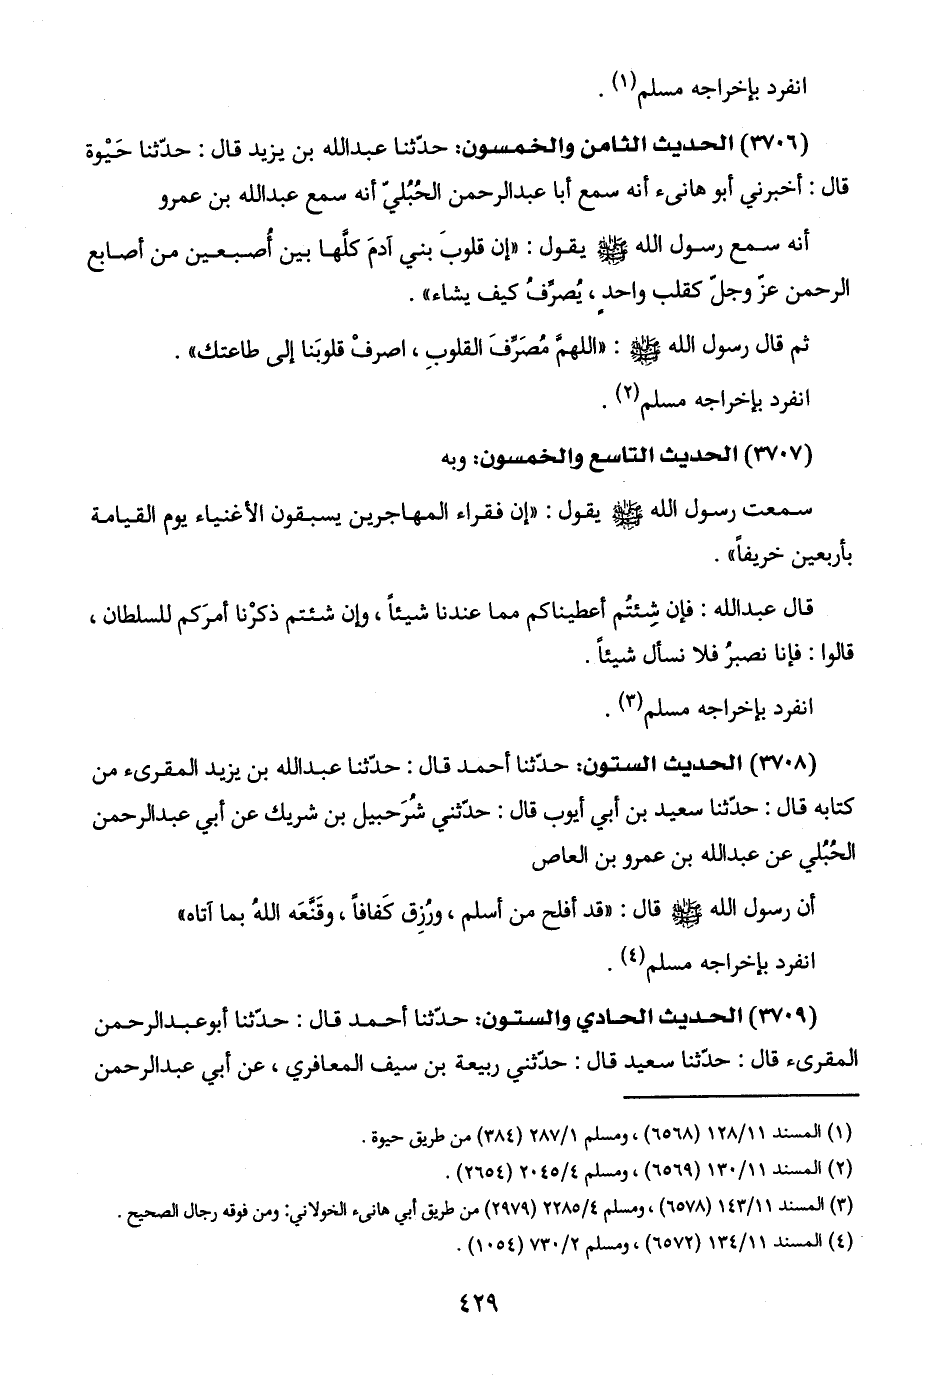 انفرد بإخراجه مسلم(١) .
(٣٧٠٦) الحديث الثامن والخمسون: حدّثنا عبدالله بن يزيد قال : حدّثنا حَيْوة
قال : أخبرني أبو هانىء أنه سمع أبا عبدالرحمن الحُبُليّ أنه سمع عبدالله بن عمرو
أنه سمع رسول الله ﷺ يقول : «إن قلوبَ بني آدمَ كلَّها بين أُصبعين من أصابع
الرحمن عزّ وجلّ كقلب واحدٍ ، يُصرَّفُ كيف يشاء» .
ثم قال رسول الله ﷺ : «اللهمَّ مُصَرِّفَ القلوبِ ، اصرفْ قلوبَنا إلى طاعتك» .
انفرد بإخراجه مسلم(٢) .
(٣٧٠٧) الحديث التاسع والخمسون: وبه
سمعت رسول الله ﷺ يقول : «إن فقراء المهاجرين يسبقون الأغنياء يوم القيامة
بأربعين خريفاً» .
قال عبدالله : فإن شِئتُم أعطيناكم مما عندنا شيئاً ، وإن شئتم ذكرْنا أمرَكم للسلطان ،
قالوا : فإنا نصبرُ فلا نسأل شيئاً .
انفرد بإخراجه مسلم(٣) .
(٣٧٠٨) الحديث الستون: حدّثنا أحمد قال : حدّثنا عبدالله بن يزيد المقرىء من
كتابه قال : حدّثنا سعيد بن أبي أيوب قال : حدّثني شُرَحبيل بن شريك عن أبي عبدالرحمن
الحُبُلي عن عبدالله بن عمرو بن العاص
أن رسول الله ﷺ قال : «قد أفلح من أسلم ، ورُزِق كَفافاً ، وقَنَّعَه اللهُ بما آتاه»
انفرد بإخراجه مسلم(٤) .
(٣٧٠٩) الحديث الحادي والستون: حدّثنا أحمد قال : حدّثنا أبوعبدالرحمن
المقرىء قال : حدّثنا سعيد قال : حدّثني ربيعة بن سيف المعافري ، عن أبي عبدالرحمن
(١) المسند ١٢٨/١١ (٦٥٦٨) ، ومسلم ٢٨٧/١ (٣٨٤) من طريق حيوة .
(٢) المسند ١٣٠/١١ (٦٥٦٩) ، ومسلم ٢٠٤٥/٤ (٢٦٥٤) .
(٣) المسند ١٤٣/١١ (٦٥٧٨) ، ومسلم ٢٢٨٥/٤ (٢٩٧٩) من طريق أبي هانىء الخولاني: ومن فوقه رجال الصحيح .
(٤) المسند ١٣٤/١١ (٦٥٧٢) ، ومسلم ٧٣٠/٢ (١٠٥٤) .
٤٢٩